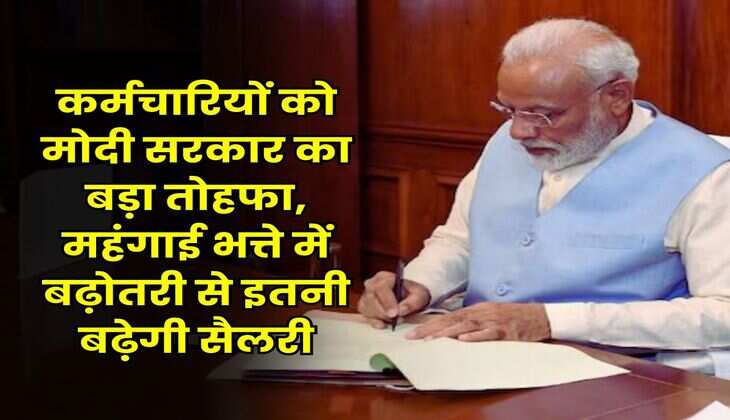 कर्मचारियों को
मोदी सरकार का
बड़ा तोहफा,
महंगाई भत्ते में
बढ़ोतरी से इतनी
बढ़ेगी सैलरी